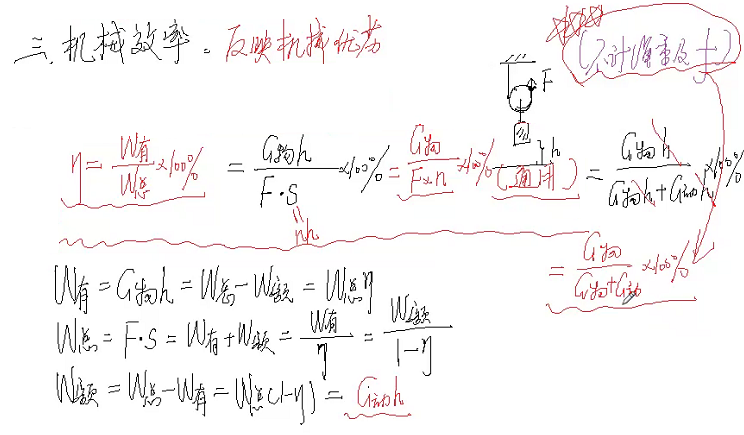 三、机械效率。反映机械优劣
(不计绳重及f)
F
h
η = W有/W总 ×100% = G物h/F·S ×100% = G物/F×n ×100% (通用) = G物h/G物h+G动h ×100%
nh
= G物/G物+G动 ×100%
W有 = G物h = W总-W额 = W总η
W总 = F·S = W有+W额 = W有/η = W额/1-η
W额 = W总-W有 = W总(1-η) = G动h